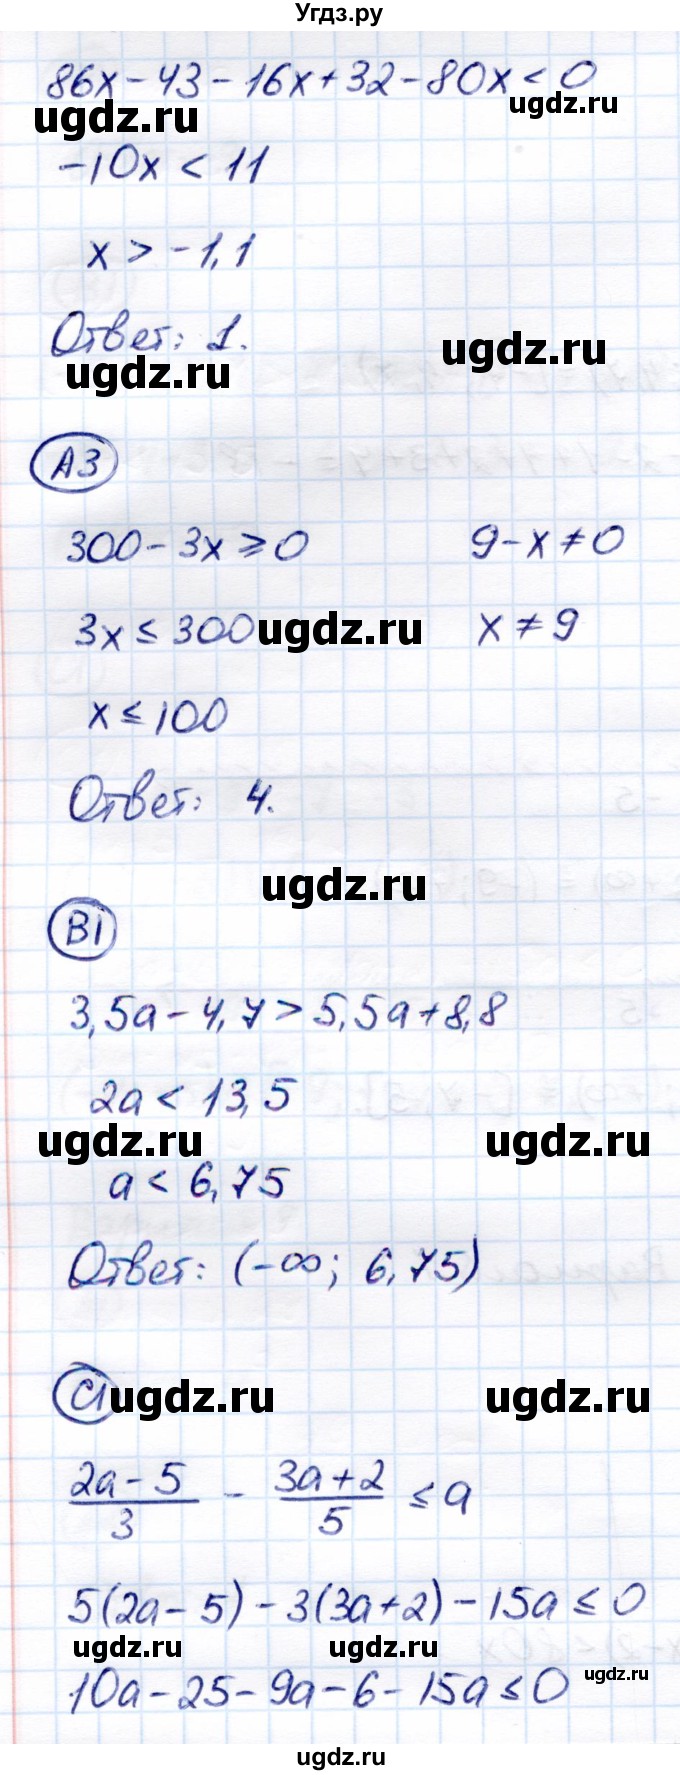 Угдз.ру
86x - 43 - 16x + 32 - 80x < 0
ugdz.ru
ugdz.ru
-10x < 11
x > -1,1
Ответ: 1.
ugdz.ru
ugdz.ru
А3
300 - 3x ≥ 0 9 - x ≠ 0
3x ≤ 300 ugdz.ru x ≠ 9
x ≤ 100
Ответ: 4.
ugdz.ru
В1
3,5a - 4,7 > 5,5a + 8,8
2a < 13,5
ugdz.ru ugdz.ru
a < 6,75
Ответ: (-∞; 6,75)
С1 ugdz.ru ugdz.ru
(2a - 5)/3 - (3a + 2)/5 ≤ a
5(2a - 5) - 3(3a + 2) - 15a ≤ 0
ugdz.ru ugdz.ru ugdz.ru
10a - 25 - 9a - 6 - 15a ≤ 0
ugdz.ru